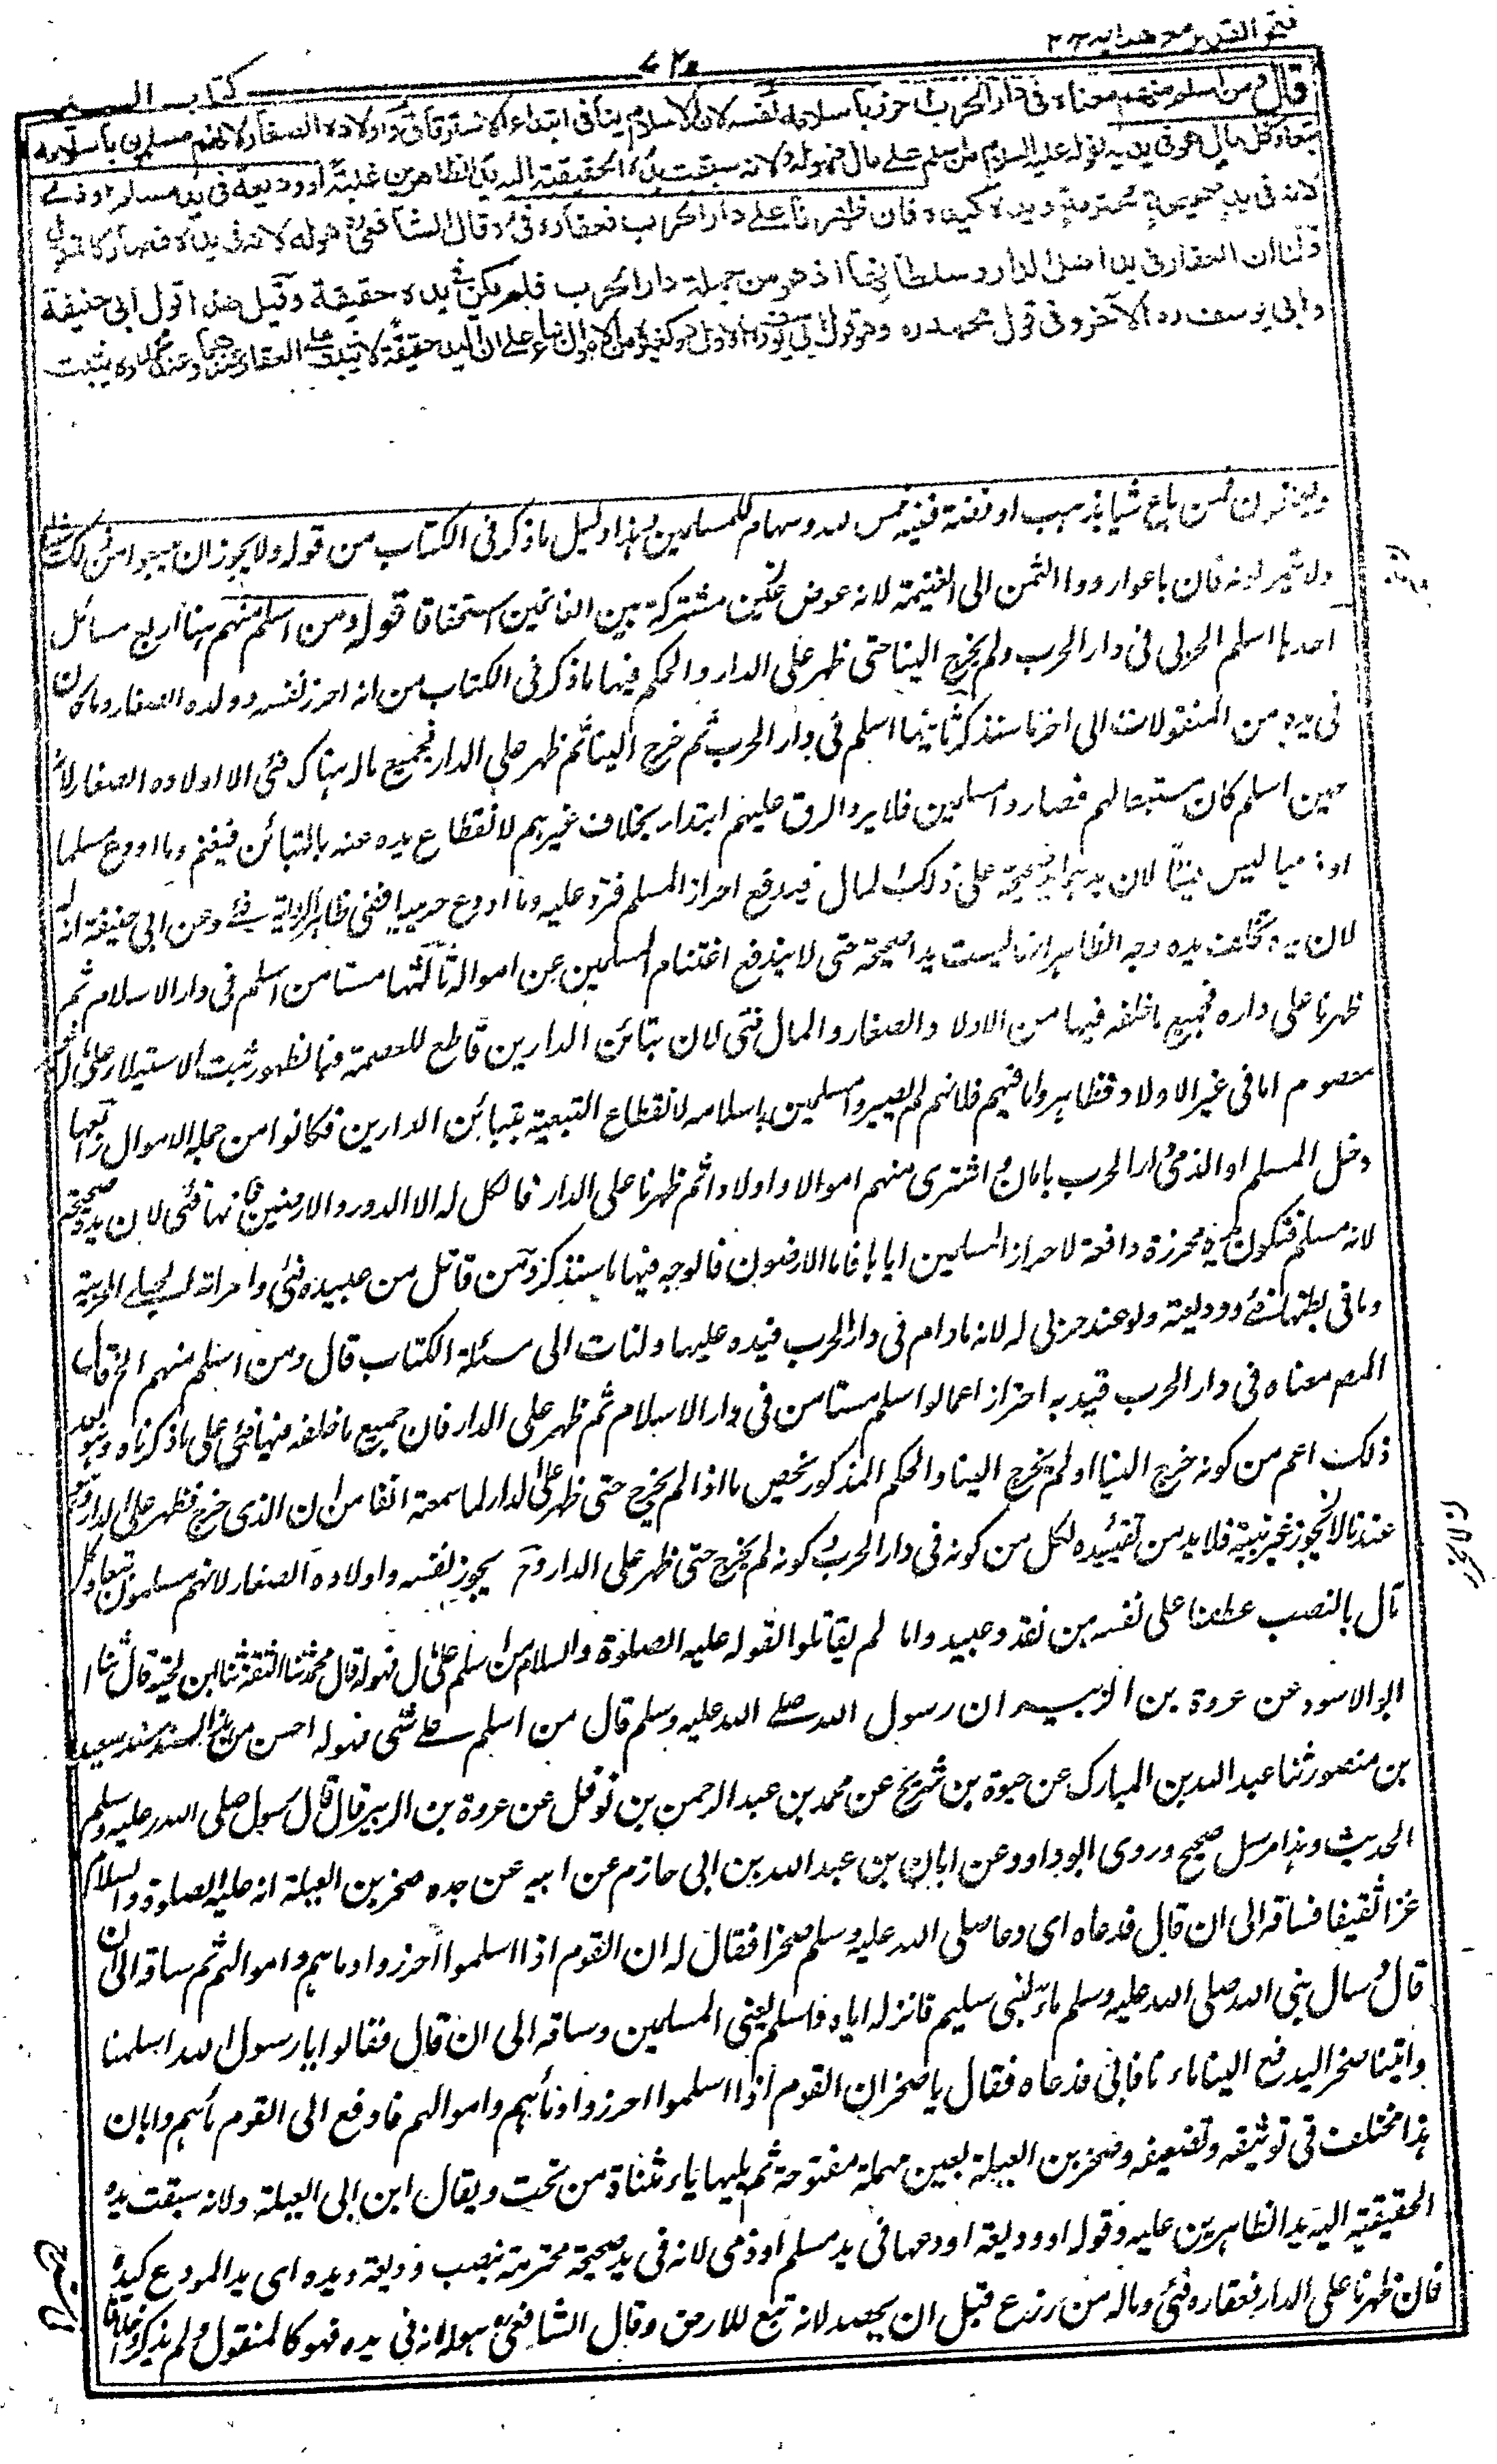 فتح القدير مع هدايه ج٢
٧٢٠
كتاب السير
قال ومن اسلم منهم معناه في دار الحرب احرز باسلامه نفسه لان الاسلام ينافي ابتداء الاسترقاق واولاده الصغار لانهم مسلمون باسلامه
تبعا وكل مال هو في يده لقوله عليه السلام من اسلم على مال فهو له ولانه سبقت يده الحقيقية اليه يد الظاهرين عليه او وديعة في يد مسلم او ذمي
لانه في يد صحيحة محترمة ويده كيده فان ظهرنا على دار الحرب فعقاره فيء وقال الشافعي هو له لانه في يده فصار كالمنقول
ولنا ان العقار في يد اهل الدار وسلطانها اذ هو من جملة دار الحرب فلم يكن في يده حقيقة وقيل هذا قول ابي حنيفة
وابي يوسف ره الآخر وفي قول محمد ره وهو قول ابي يوسف ره الاول هو كغيره من الاموال بناء على ان اليد حقيقة لا تثبت على العقار عندهما وعند محمد ره تثبت
فان ثمن باع شيا بذهب او فضة ففيه خمس لله وسهام للمسلمين هذا دليل ما ذكر في الكتاب من قوله ولا يجوز ان يبيعوا من ذلك شيئا
ولا يتمولونه فان باعوا ردوا الثمن الى الغنيمة لانه عوض عين مشتركة بين الغانمين استحقاقا قوله ومن اسلم منهم هنا اربع مسائل
احدها اسلم الحربي في دار الحرب ولم يخرج الينا حتى ظهر على الدار والحكم فيها ما ذكر في الكتاب من انه احرز نفسه وولده الصغار وما كان
في يده من المنقولات الى اخر ما سنذكر ثانيها اسلم في دار الحرب ثم خرج الينا ثم ظهر على الدار فجميع ماله هناك فئ الا اولاده الصغار لانه
حين اسلم كان مستتبعا لهم فصاروا مسلمين فلا يرد الرق عليهم ابتداء بخلاف غيرهم لانقطاع يده عنه بالتبائن فيغنم وما اودع مسلما
او ذميا ليس فيئا لان يدهما يد صحيحة على ذلك المال فيدفع احراز المسلم فترد عليه وما اودع حربيا ففي ظاهر الرواية فئ وعن ابي حنيفة انه له
لان يده تخلف يده وجه الظاهر انها ليست يدا صحيحة حتى لا يندفع اغتنام المسلمين عن امواله ثالثتها مستامن اسلم في دار الاسلام ثم
ظهرنا على داره فجميع ما خلفه فيها من الاولاد الصغار والمال فئ لان تبائن الدارين قاطع للعصمة فبالظهور ثبت الاستيلاء على مال غير
معصوم اما في غير الاولاد فظاهر واما فيهم فلانهم لم يصيروا مسلمين باسلامه لانقطاع التبعية بتبائن الدارين فكانوا من جملة الاموال رابعها
دخل المسلم او الذمي دار الحرب بامان و اشترى منهم اموالا واولادا ثم ظهرنا على الدار فالكل له الا الدور والارضين فانها فئ لان يده صحيحة
لانه مسلم فتكون يده محرزة دافعة لاحراز المسلمين اياها فاما الارضون فالوجه فيها ما سنذكر ومن قاتل من عبيده فئ وامراته الحبلى الحربية
وما في بطنها فئ ووديعته ولو عند حربي له لانه ما دام في دار الحرب فيده عليها ولنات الى مسئلة الكتاب قال ومن اسلم منهم الخ قال
المص معناه في دار الحرب قيد به احترازا عما لو اسلم مستامن في دار الاسلام ثم ظهر على الدار فان جميع ما خلفه فيها فئ على ما ذكرناه وهو بعد
ذلك اعم من كونه خرج الينا او لم يخرج الينا والحكم المذكور يخص ما اذا لم يخرج حتى ظهر على الدار لما سمعته انفا من ان الذي خرج فظهر على الدار
عندنا لا يحوز غير بنيه فلا بد من تقييده لكل من كونه في دار الحرب وكونه لم يخرج حتى ظهر على الدار و ح يحوز نفسه واولاده الصغار لانهم مسلمون تبعا وكل
مال بالنصب عطفا على نفسه من نقد وعبيد واما لم يقاتلوا لقوله عليه الصلوة والسلام من اسلم على مال فهو له قال محمد ثنا الثقة ثنا ابن لهيعة قال ثنا
ابو الاسود عن عروة بن الزبير ان رسول الله صلى الله عليه وسلم قال من اسلم على شئ فهو له احسن من هذا السند سند سعيد
بن منصور ثنا عبد الله بن المبارك عن حيوة بن شريح عن محمد بن عبد الرحمن بن نوفل عن عروة بن الزبير قال قال رسول صلى الله عليه وسلم
الحديث وهذا مرسل صحيح وروى ابو داود عن ابان بن عبد الله بن ابي حازم عن ابيه عن جده صخر بن العيلة انه عليه الصلوة والسلام
غزا ثقيفا فساقه الى ان قال فدعاه اى دعا صلى الله عليه وسلم صخرا فقال له ان القوم اذا اسلموا احرزوا دماءهم واموالهم ثم ساقه الى ان
قال وسال نبي الله صلى الله عليه وسلم ماء لبني سليم فانزله اياه فاسلم يعني المسلمين وساقه الى ان قال فقالوا يا رسول الله اسلمنا
واتينا صخرا ليدفع الينا ماءنا فابى فدعاه فقال يا صخر ان القوم اذا اسلموا احرزوا دماءهم واموالهم فادفع الى القوم ماءهم وابان
هذا مختلف في توثيقه وتضعيفه وصخر بن العيلة بعين مهملة مفتوحة ثم يليها ياء مثناة من تحت ويقال ابن ابى العيلة ولانه سبقت يده
الحقيقية اليه يد الظاهرين عليه وقوله او وديعة اودعها في يد مسلم او ذمي لانه في يد صحيحة محترمة بنصب وديعة ويده اى يد المودع كيده
فان ظهرنا على الدار فعقاره فئ وماله من زرع قبل ان يحصد لانه تبع للارض وقال الشافعي هو له لانه في يده فهو كالمنقول ولم يذكر خلافا